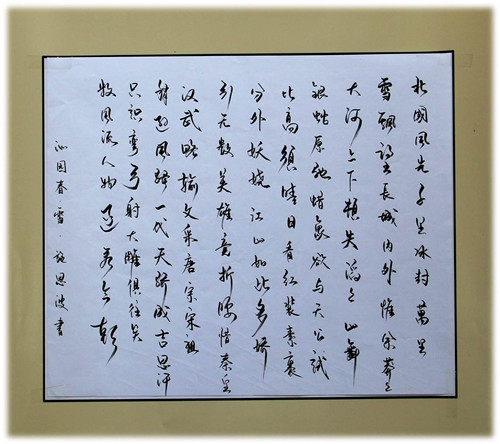 北國風光千里冰封萬里
雪飄望長城内外惟余莽々
大河上下頓失滔々山舞
銀蛇原馳蜡象欲与天公試
比高須晴日看红装素裹
分外妖娆江山如此多娇
引无数英雄竞折腰惜秦皇
汉武略输文采唐宗宋祖
稍逊風骚一代天骄成吉思汗
只识弯弓射大雕俱往矣
数風流人物还看今朝
沁园春·雪·施 波書